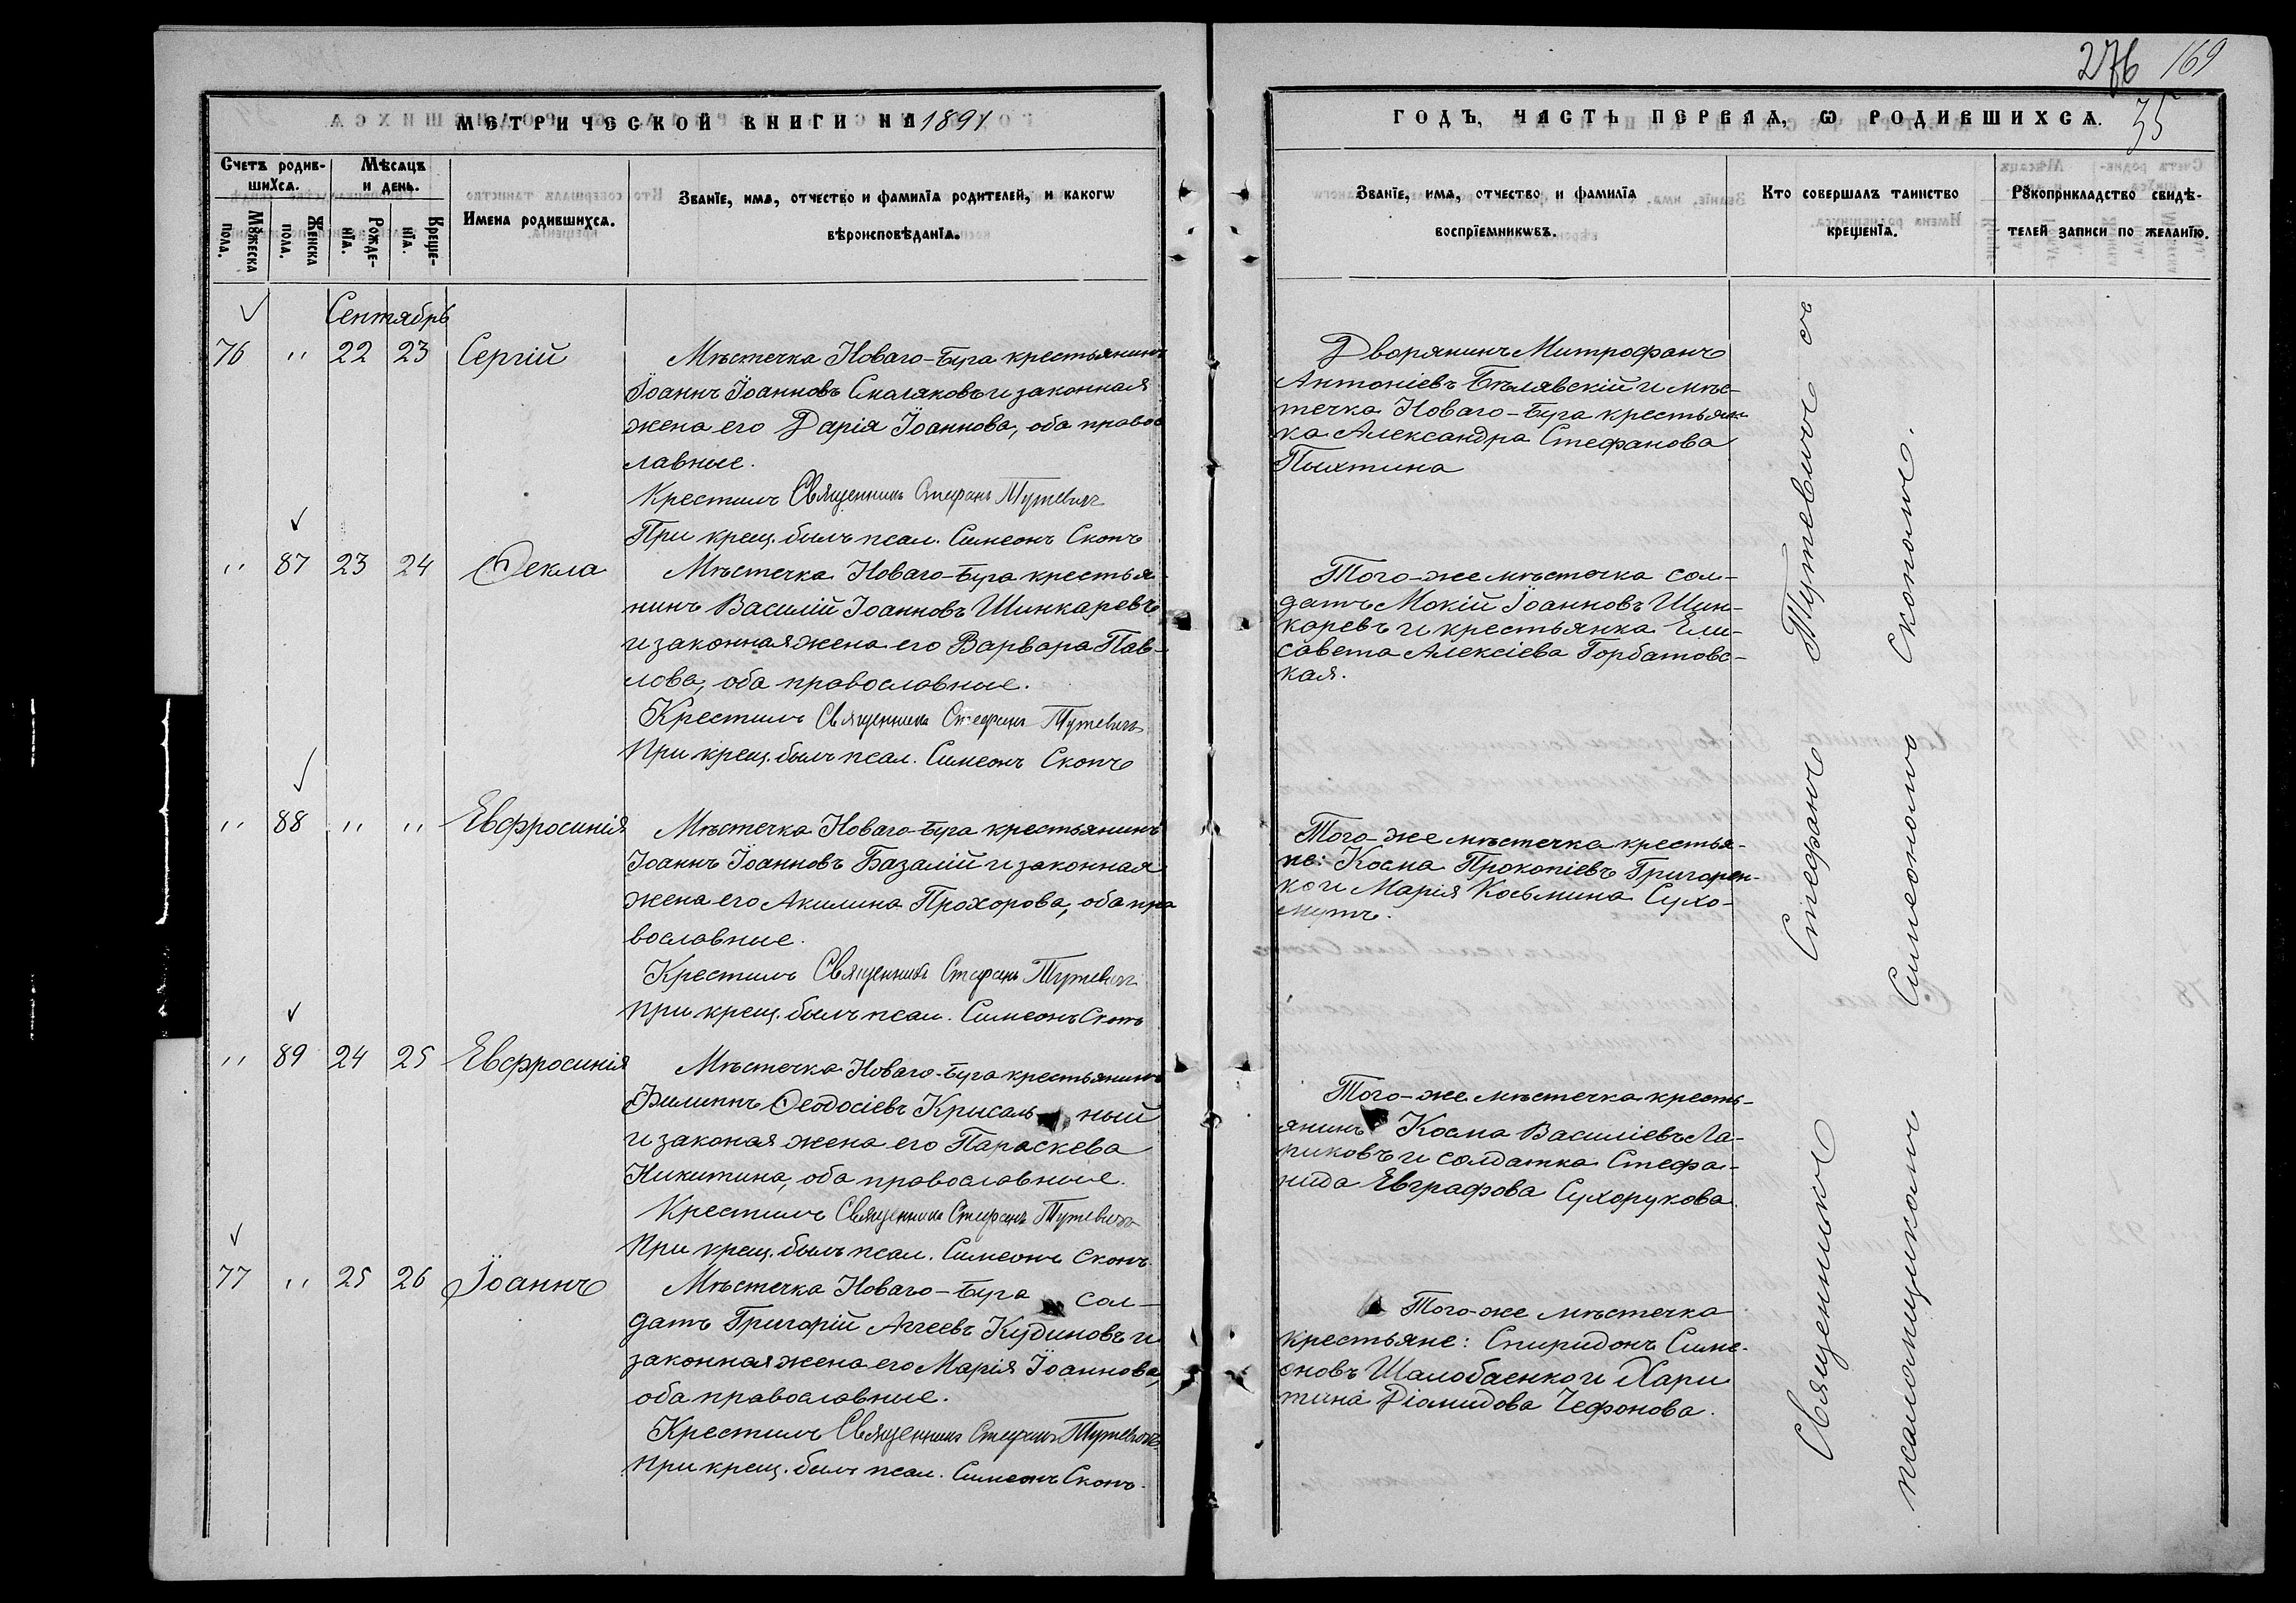 276 169
35
МЕТРИЧЕСКОЙ КНИГИ НА 1891
ГОДЪ, ЧАСТЬ ПЕРВАЯ, Ѡ РОДИВШИХСѦ.
Счетъ родив-
шихсѧ.
Мꙋжеска
пола.
Женска
пола.
Мѣсяцъ
и день.
Рожде-
нїѧ.
Креще-
нїѧ.
Имена родившихсѧ.
Званїе, имѧ, отчество и фамилїѧ родителей, и какогѡ
вѣроисповѣданїѧ.
Званїе, имѧ, отчество и фамилїѧ
воспрїемникѡвъ.
Кто совершалъ таинство
крещенїѧ.
Рꙋкоприкладство свидѣ-
телей записи по желанїю.
Сентябрь
76 " 22 23 Сергій
Мѣстечка Новаго-Буга крестьянинъ
Іоаннъ Іоанновъ Смаляковъ и законная
жена его Дарія Іоаннова, оба правос
лавные.
Крестилъ Священникъ Стефанъ Тутевичъ
При крещ. былъ псал. Симеонъ Скопъ
Дворянинъ Митрофанъ
Антоніевъ Бѣлявскій и мѣс-
течка Новаго-Буга крестьян-
ка Александра Стефанова
Пыхтина
" 87 23 24 Ѳекла
Мѣстечка Новаго-Буга крестья-
нинъ Василій Іоанновъ Шинкаревъ
и законная жена его Варвара Пав-
лова, оба православные.
Крестилъ Священникъ Стефанъ Тутевичъ
При крещ. былъ псал. Симеонъ Скопъ
Того-же мѣстечка сол-
датъ Мокій Іоанновъ Шин-
каревъ и крестьянка Ели-
савета Алексіева Горбатовс-
кая.
" 88 " " Евфросинія
Мѣстечка Новаго-Буга крестьянинъ
Іоаннъ Іоанновъ Базалій и законная
жена его Акилина Прохорова, оба пра
вославные.
Крестилъ Священникъ Стефанъ Тутевичъ
При крещ. былъ псал. Симеонъ Скопъ
Того-же мѣстечка крестья-
не: Косма Прокопіевъ Григорен-
ко и Марія Косьмина Сухо-
мутъ.
" 89 24 25 Евфросинія
Мѣстечка Новаго-Буга крестьянинъ
Филиппъ Ѳеодосіевъ Крисаль ный
и законая жена его Параскева
Никитина, оба православные.
Крестилъ Священникъ Стефанъ Тутевичъ
При крещ. былъ псал. Симеонъ Скопъ.
Того-же мѣстечка кресть-
янинъ Косма Василіевъ Ла-
пиковъ и солдатка Стефа-
нида Евграфова Сухорукова.
77 " 25 26 Іоаннъ
Мѣстечка Новаго-Буга сол-
датъ Григорій Аггеевъ Кудиновъ и
законная жена его Марія Іоаннова,
оба православные.
Крестилъ Священникъ Стефанъ Тутевичъ
При крещ. былъ псал. Симеонъ Скопъ.
Того-же мѣстечка
крестьяне: Спиридонъ Симе-
оновъ Шалобаенко и Хари
тина Діамидова Чефонова.
Священникъ Стефанъ Тутевичъ съ
псаломщикомъ Симеономъ Скопомъ.